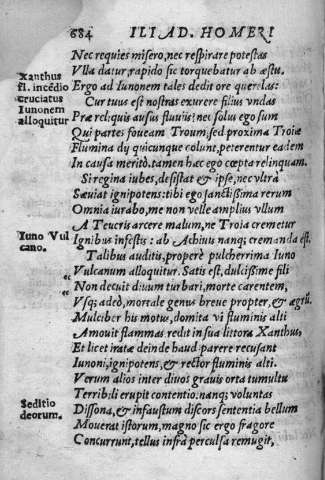 684 ILIAD. HOMERI
Nec requies misero, nec respirare potestas
Vlla datur, rapido sic torquebatur ab æstu.
Xanthus
fl. incēdio
cruciatus
Iunonem
alloquitur
Ergo ad Iunonem tales dedit ore querelas:
Cur tuus est nostras exurere filius vndas
Præ reliquis ausus fluuiis? nec solus ego sum
Qui partes foueam Troum, sed proxima Troiæ
Flumina dÿ quicunque colunt, peterentur eadem
In causa meritò. tamen hac ego cœpta relinquam.
Si regina iubes, desistat & ipse, nec vltrà
Sæuiat ignipotens: tibi ego sanctissima rerum
Omnia iurabo, me non velle amplius vllum
A Teucris arcere malum, ne Troia cremetur
Iuno Vul
cano.
Ignibus infestis: ab Achiuis nanq; cremanda est.
Talibus auditis, properè pulcherrima Iuno
“ Vulcanum alloquitur. Satis est, dulcissime fili
“ Non decuit diuum turbari, morte carentem,
Vsq; adeò, mortale genus breue propter, & ægrū.
Mulciber his motus, domita vi fluminis alti
Amouit flammas. redit in sua littora Xanthus,
Et licet iratæ deinde haud parere recusant
Iunoni, ignipotens, & rector fluminis alti.
Verum alios inter diuos grauis orta tumultu
Terribili erupit contentio. nanq; voluntas
Seditio
deorum.
Dissona, & infaustum discors sententia bellum
Mouerat istorum, magno sic ergo fragore
Concurrunt, tellus infrà perculsa remugit,